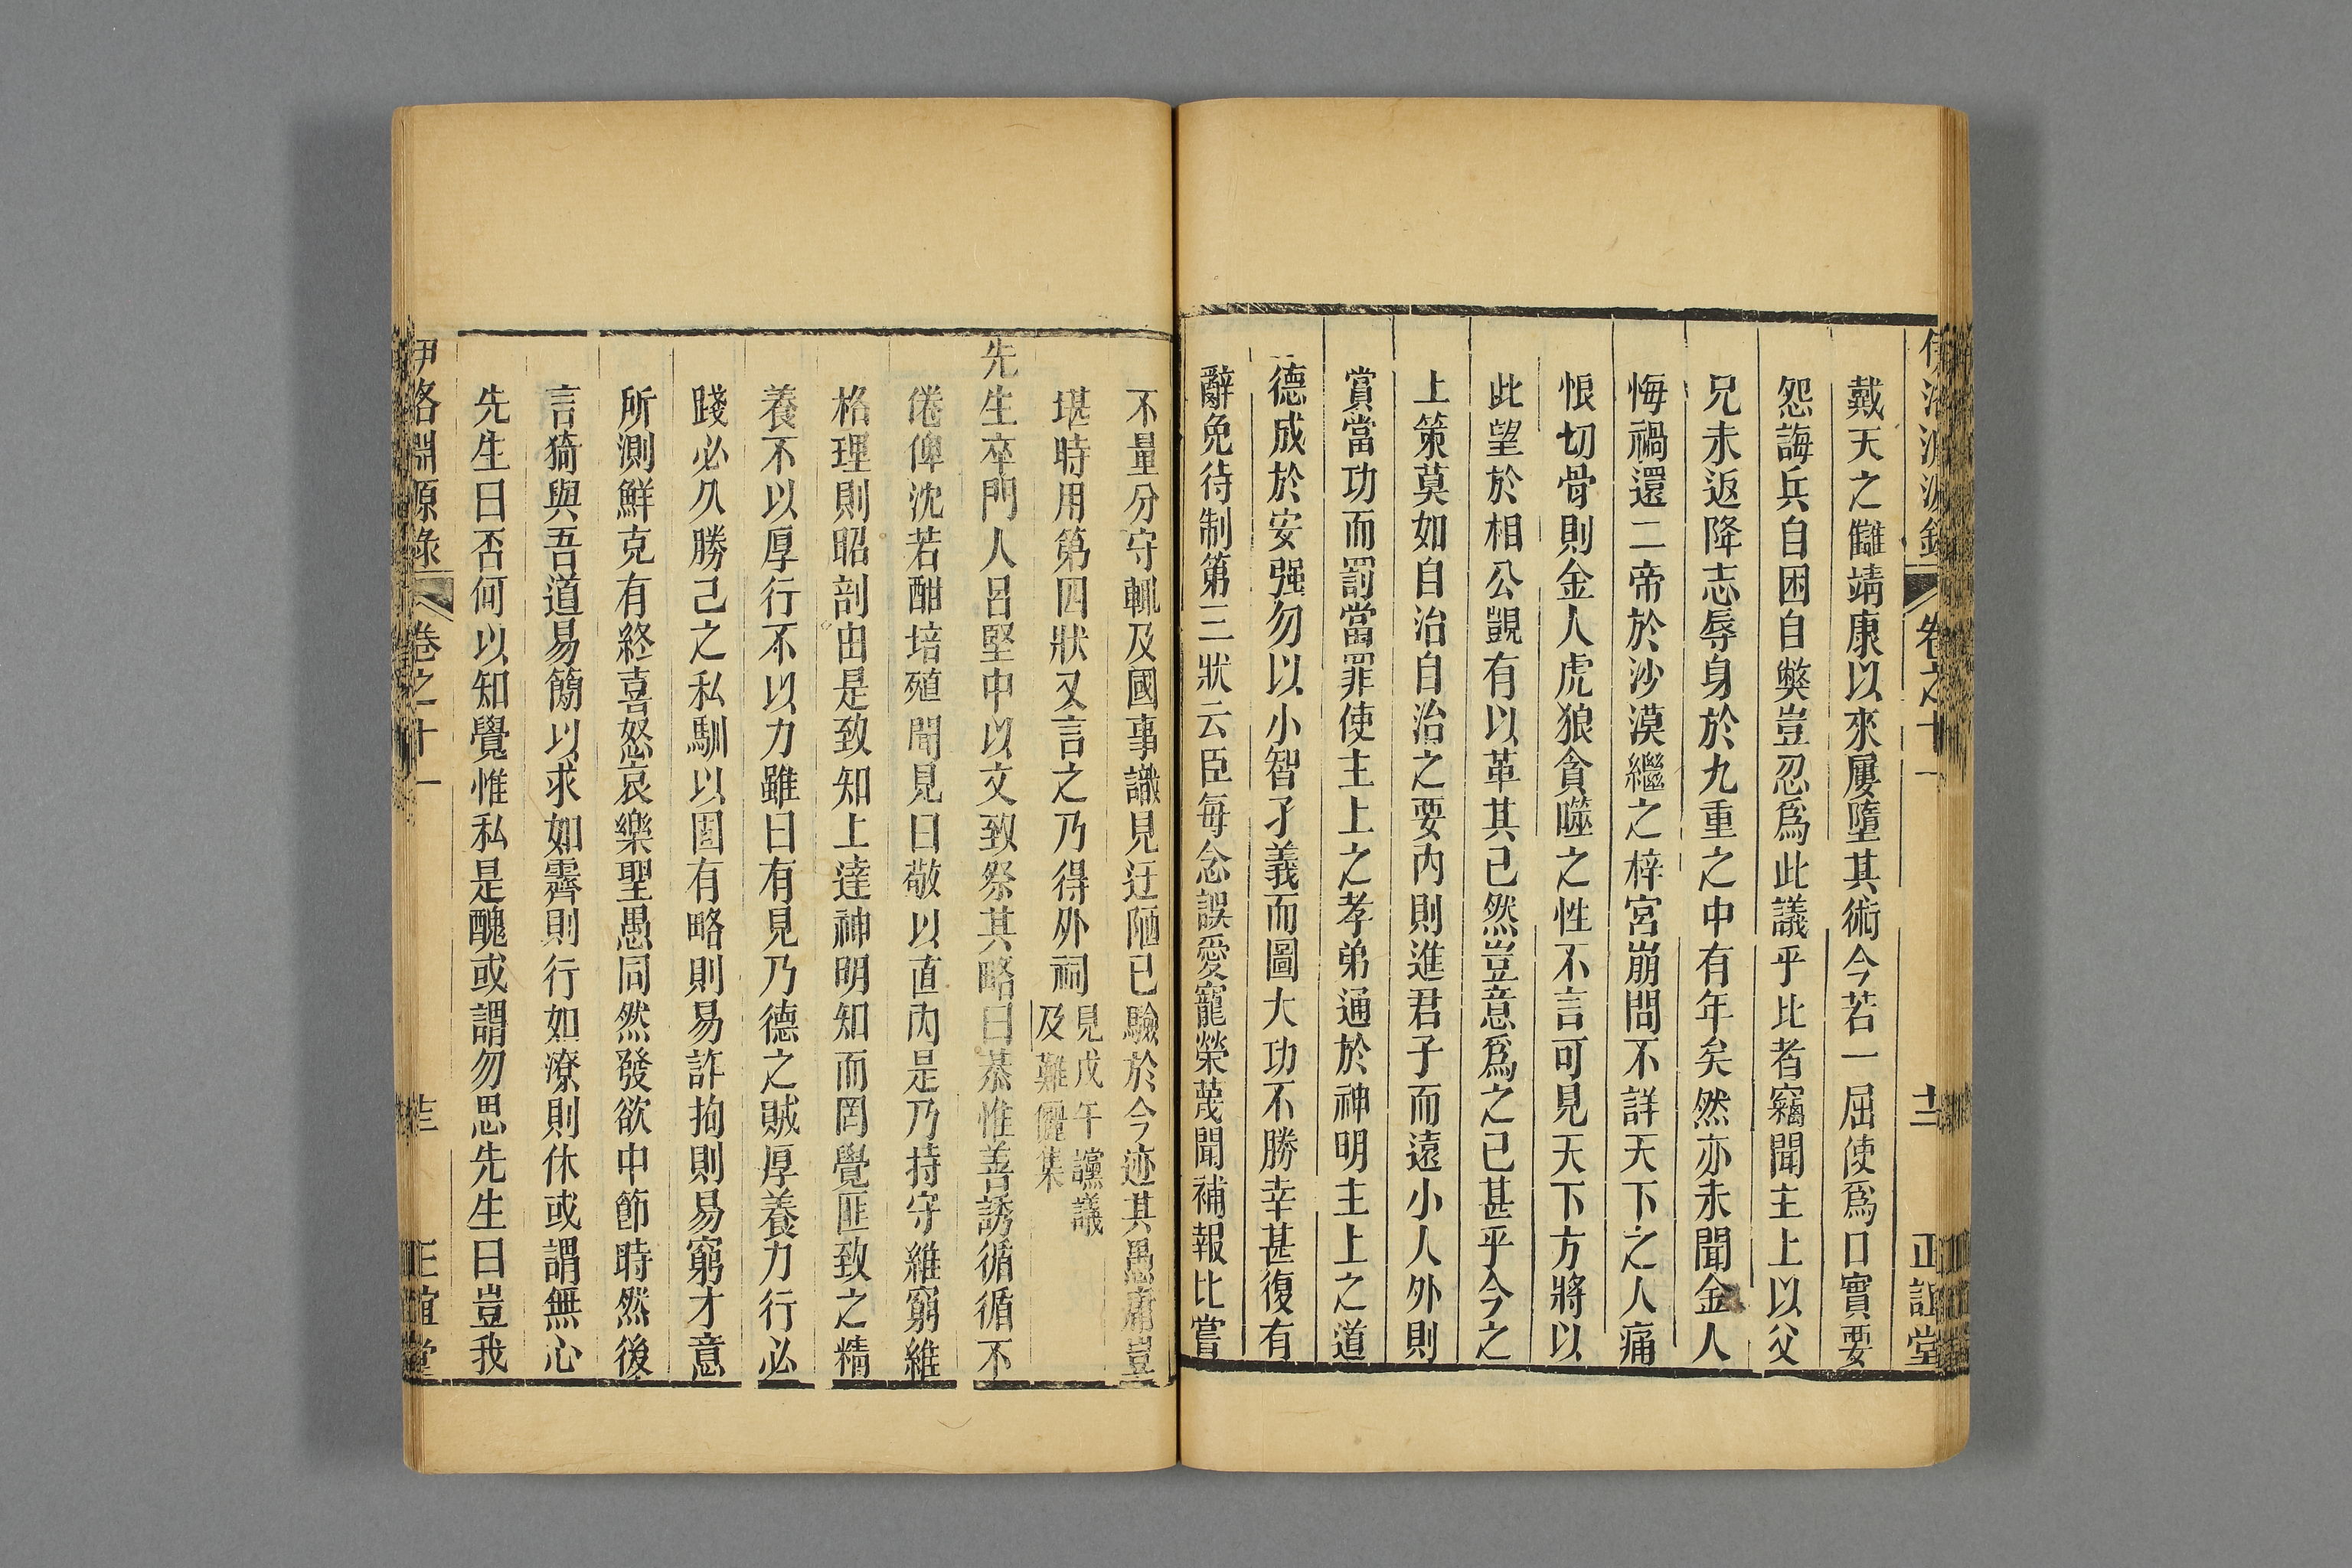 伊洛淵源錄 卷之十一 十二 正誼堂
戴天之讎靖康以來屢墮其術今若一屈使爲口實要
怨誨兵自困自弊豈忍爲此議乎比者竊聞主上以父
兄未返降志辱身於九重之中有年矣然亦未聞金人
悔禍還二帝於沙漠繼之梓宮崩問不詳天下之人痛
恨切骨則金人虎狼貪噬之性不言可見天下方將以
此望於相公覬有以革其已然豈意爲之已甚乎今之
上策莫如自治自治之要內則進君子而遠小人外則
賞當功而罰當罪使主上之孝弟通於神明主上之道
德成於安强勿以小智孑義而圖大功不勝幸甚復有
辭免待制第三狀云臣每念誤愛寵榮蔑聞補報比嘗
不量分守輒及國事識見迂陋已驗於今迹其愚庸豈
堪時用第四狀又言之乃得外祠見戊午讜議
及難儷集
先生卒門人呂堅中以文致祭其略曰恭惟善誘循循不
倦俾沈若酣培殖聞見曰敬以直內是乃持守維窮維
格理則昭剖由是致知上達神明知而罔覺匪致之精
養不以厚行不以力雖曰有見乃德之賊厚養力行必
踐必久勝己之私馴以固有略則易詐拘則易窮才意
所測鮮克有終喜怒哀樂聖愚同然發欲中節時然後
言猗與吾道易簡以求如霽則行如潦則休或謂無心
先生曰否何以知覺惟私是醜或謂勿思先生曰豈我
伊洛淵源錄 卷之十一 十三 正誼堂